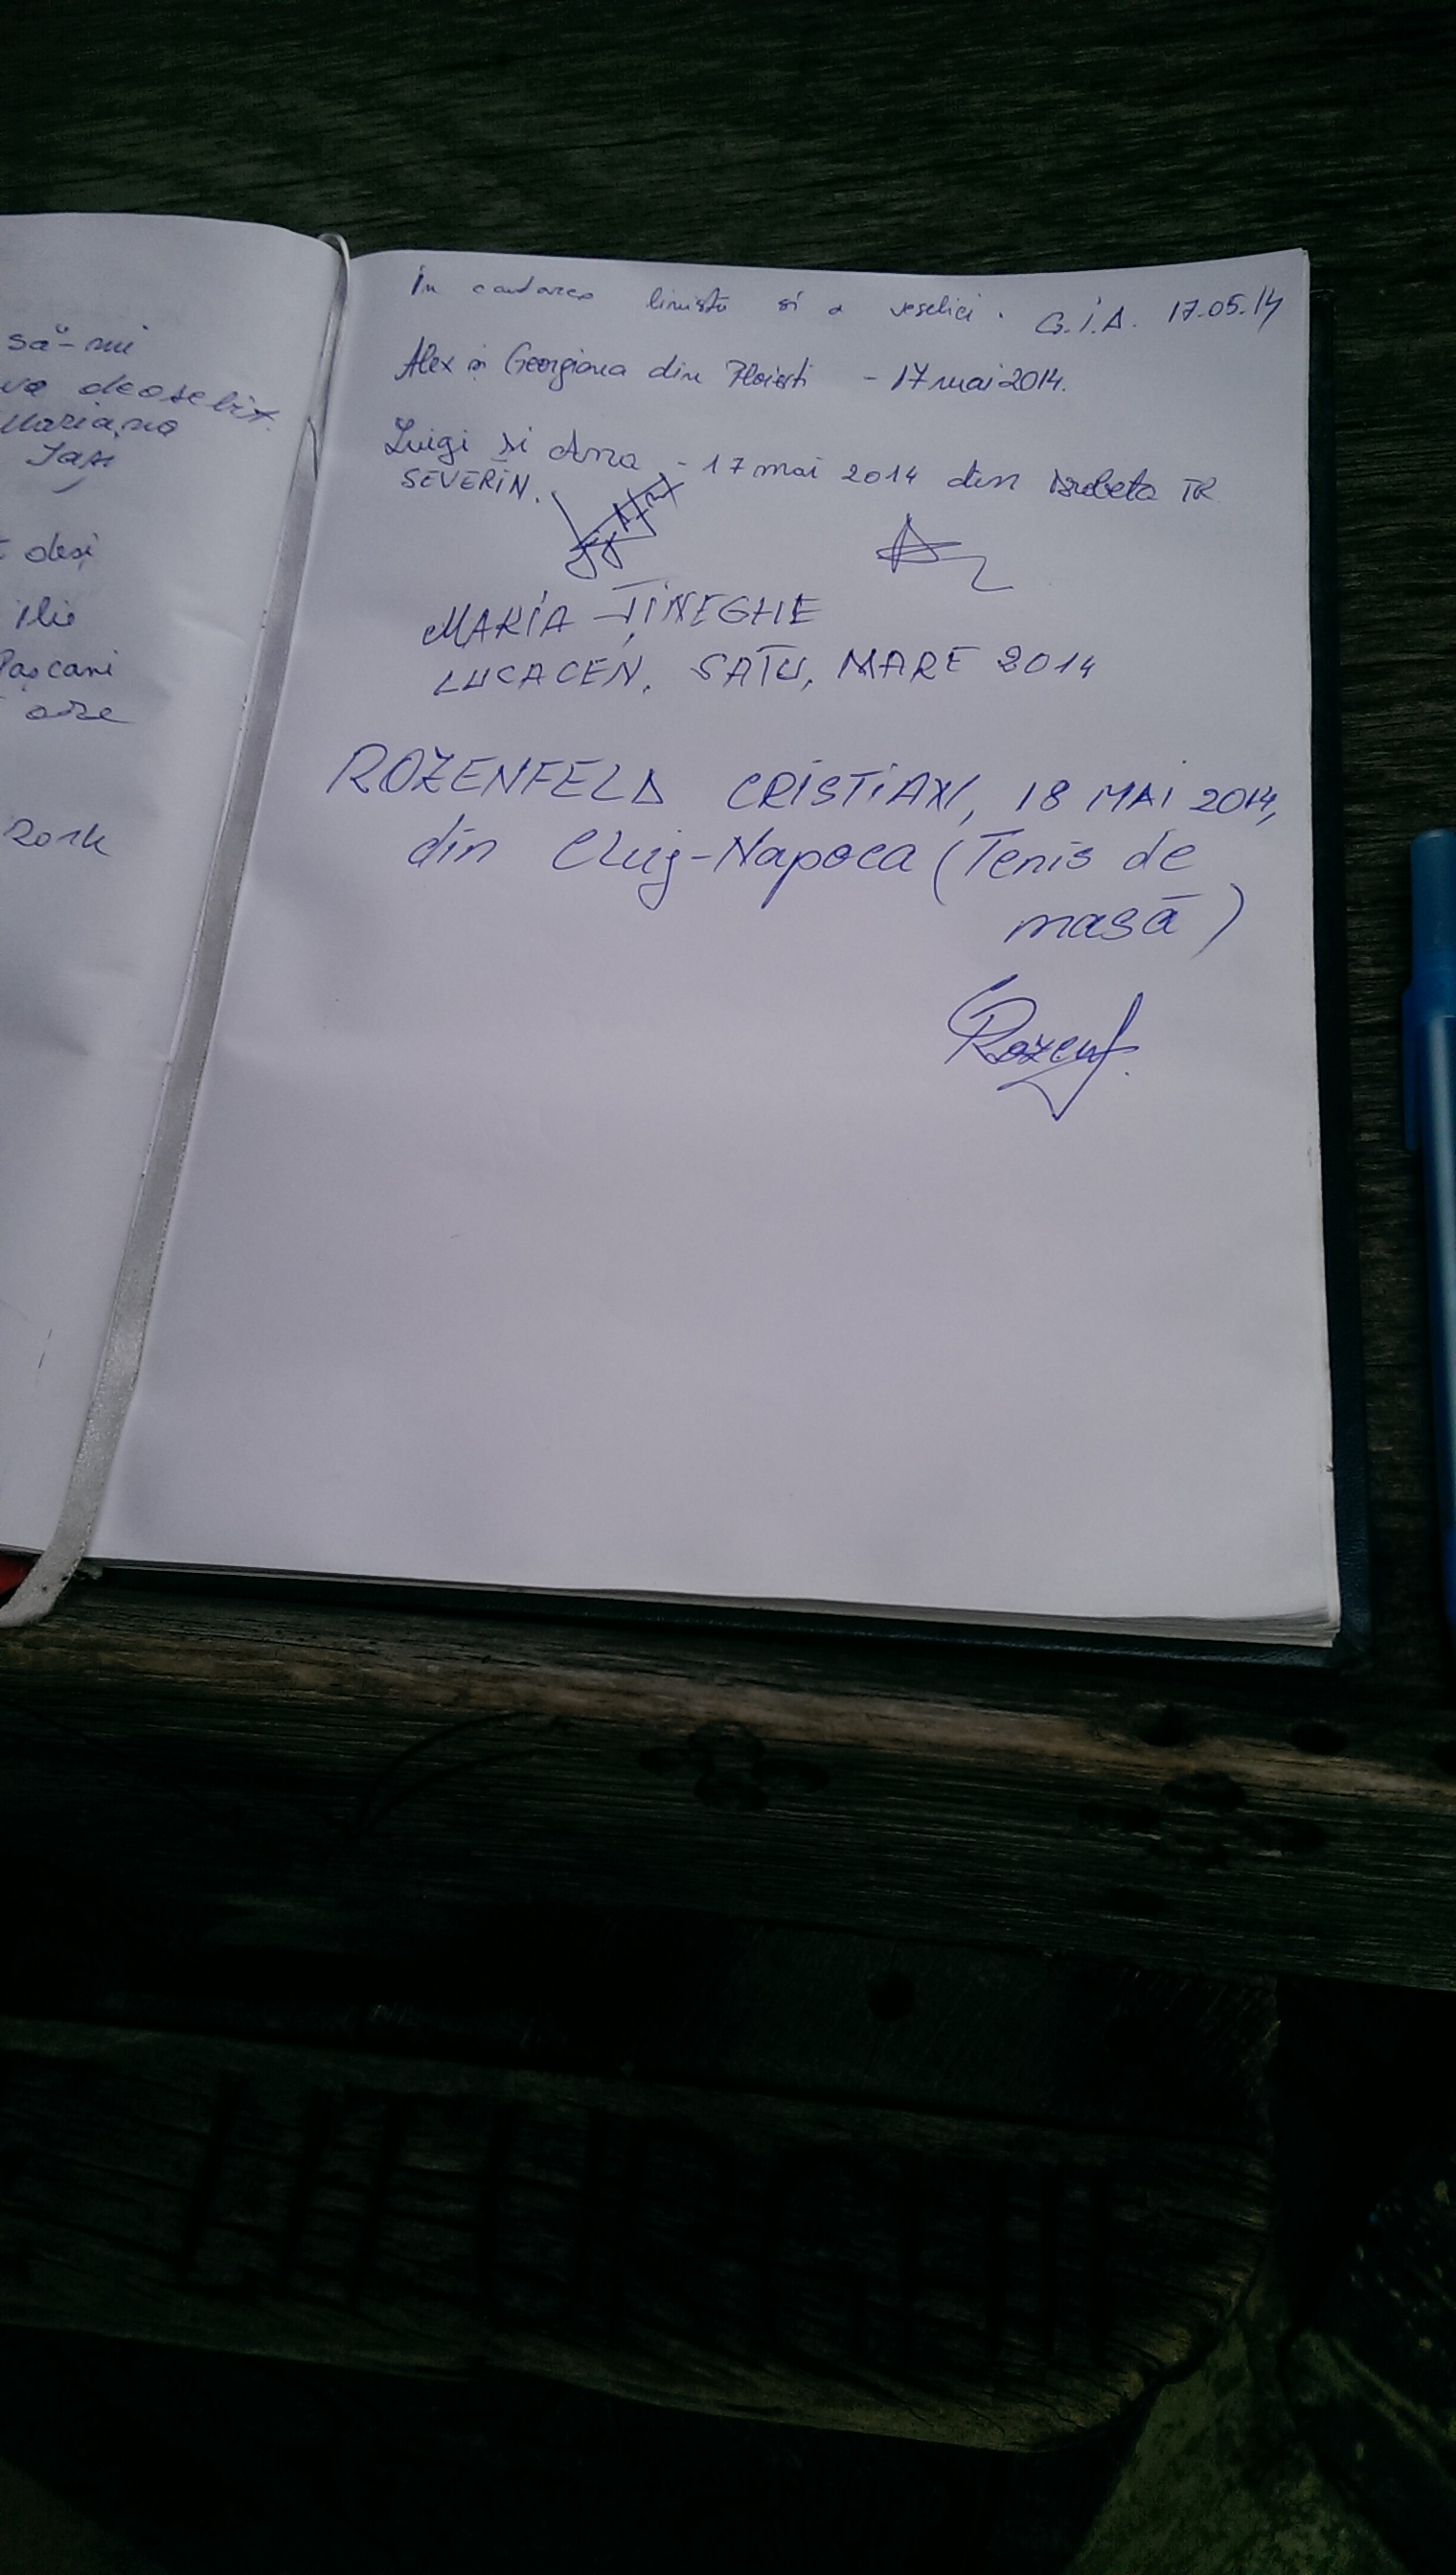 să-mi
va deosebit.
Mariana
Iași
deși
Ilie
Pașcani
ore
2014
În cautarea liniști si a veseliei. G.I.A. 17.05.14
Alex și Georgiana din Ploiesti - 17 mai 2014.
Luigi si Ana - 17 mai 2014 din Drobeta TR
SEVERIN.
MARIA ȚINEGHE
LUCACEN, SATU, MARE 2014
ROZENFELD CRISTIAN, 18 MAI 2014,
din Cluj-Napoca (Tenis de
masă)
Rozenf.